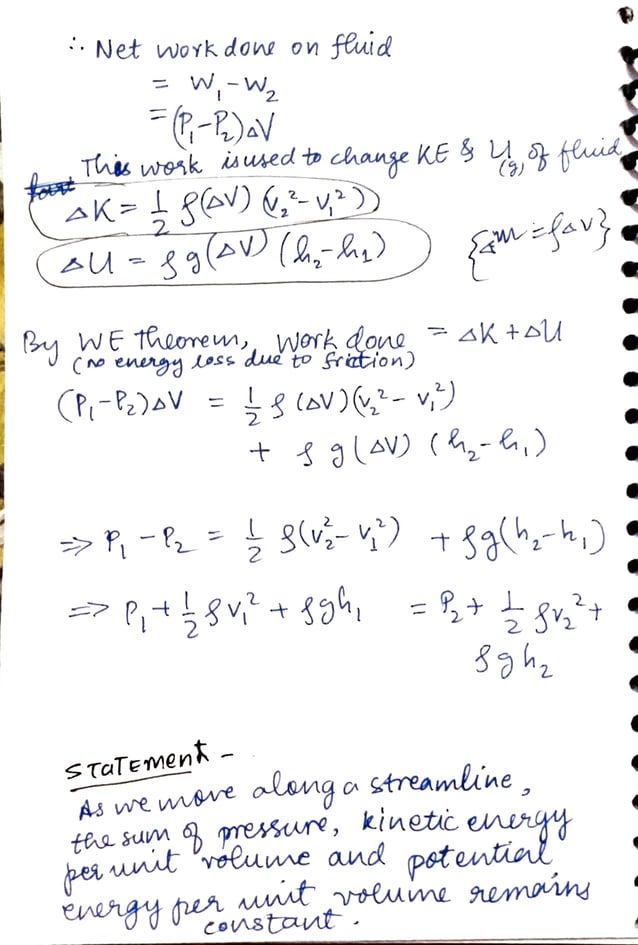 ∴ Net work done on fluid
= W₁-W₂
= (P₁-P₂)ΔV
This work is used to change KE & U(g) of fluid
ΔK = 1/2 ρ(ΔV) (v₂²-v₁²)
ΔU = ρg(ΔV) (h₂-h₁) {Δm = ρΔV}
By WE theorem, work done = ΔK+ΔU
(no energy loss due to friction)
(P₁-P₂)ΔV = 1/2 ρ (ΔV)(v₂²- v₁²)
+ ρg(ΔV) (h₂-h₁)
⇒ P₁ - P₂ = 1/2 ρ(v₂²- v₁²) + ρg(h₂-h₁)
⇒ P₁+1/2 ρv₁² + ρgh₁ = P₂+ 1/2 ρv₂²+
ρgh₂
STATEMENT -
As we move along a streamline,
the sum of pressure, kinetic energy
per unit volume and potential
energy per unit volume remains
constant.